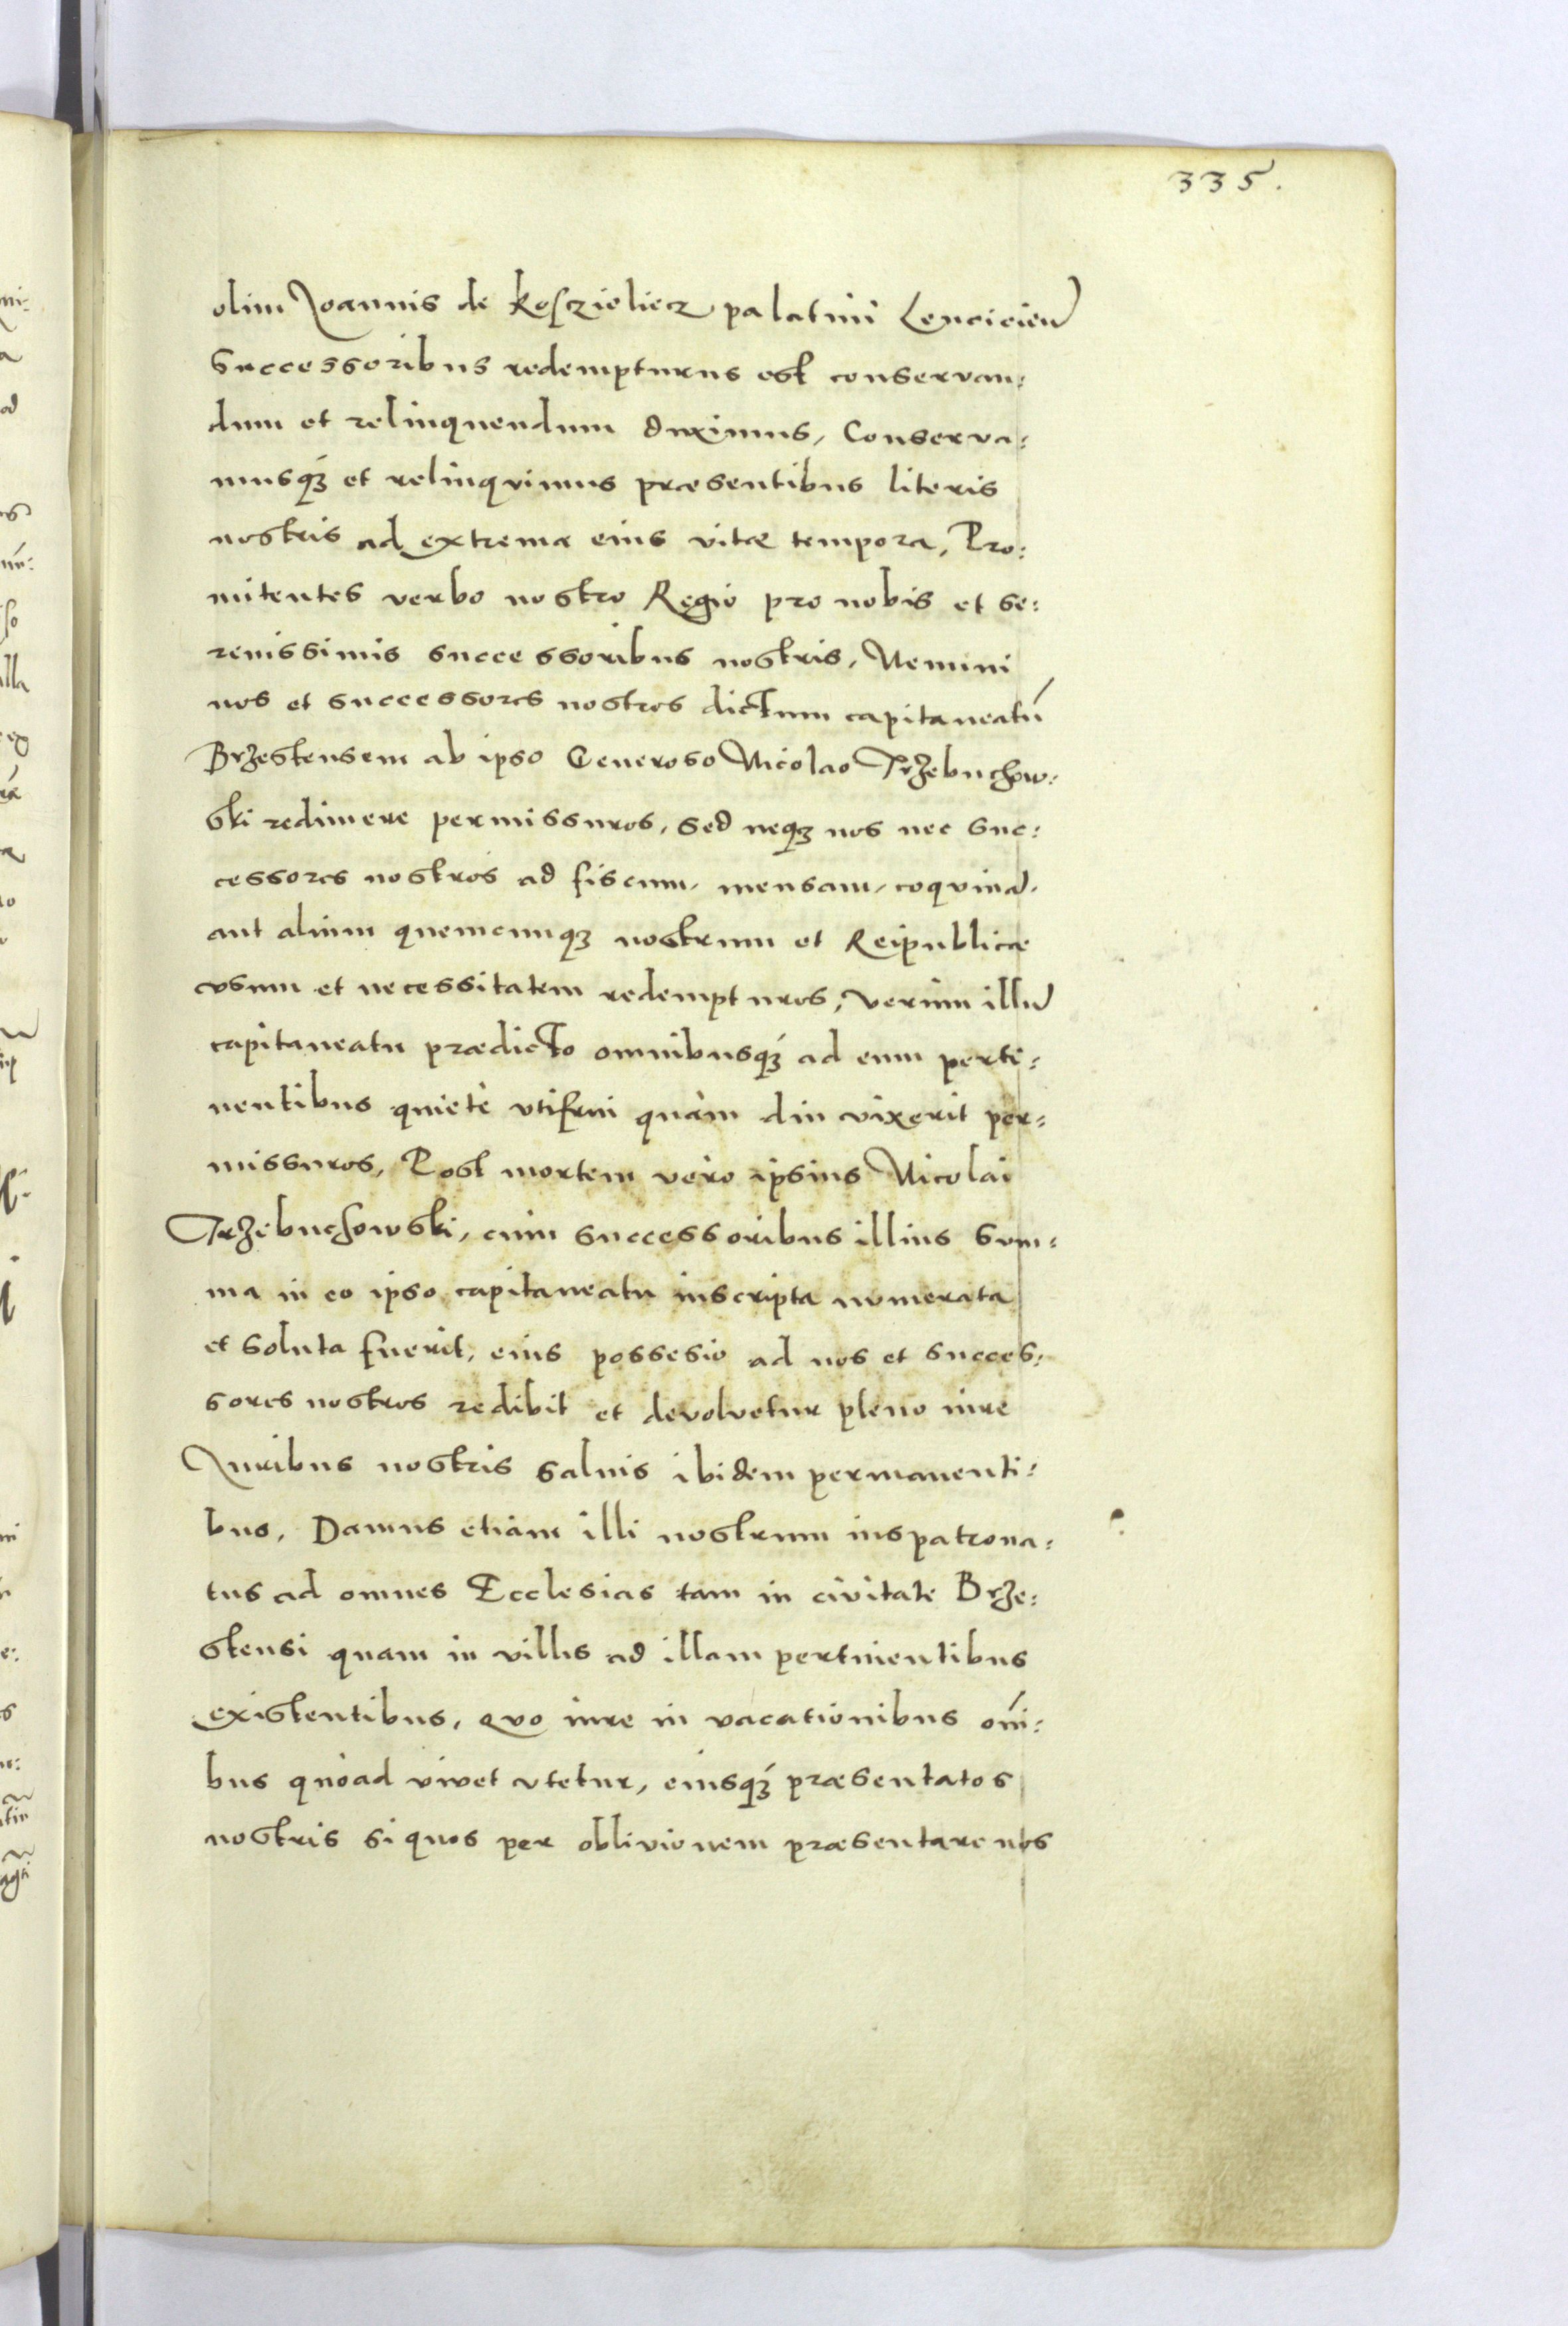 335.
olim Joannis de Kosczieliecz palatini Lencicien
successoribus redempturus est conservan:
dum et relinquendum duximus, Conserva:
musq́ꝫ et relinqvimus præsentibus literis
nostris ad extrema eius vitæ tempora, Pro:
mitentes verbo nostro Regio pro nobis et se:
renissimis successoribus nostris, Nemini
nos et successores nostros dictum capitaneatū
Brzestensem ab ipso Generoso Nicolao Trzebuchow:
ski redimere permissuros, sed neqꝫ nos nec suc:
cessores nostros ad fiscum, mensam, coqvinā,
aut alium quemcunqꝫ nostrum et Reipublicæ
vsum et necessitatem redempturos, verùm illū
capitaneatu prædicto omnibusq́ꝫ ad eum perti:
nentibus quietè vtifrui quàm diu vixerit per:
missuros, Post mortem vero ipsius Nicolai
Trzebuchowski, cùm successoribus illius sum:
ma in eo ipso capitaneatu inscripta numerata
et soluta fuerit, eius possesio ad nos et succes:
sores nostros redibit et devolvetur pleno iure
Juribus nostris saluis ibidem permanenti:
bus, Damus etiam illi nostrum ius patrona:
tus ad omnes Ecclesias tam in civitate Brze:
stensi quam in villis ad illam pertinentibus
existentibus, qvo iure in vacationibus om̄i:
bus quoad vivet vtetur, eiusq́ꝫ præsentatos
nostris si quos per oblivionem præsentare nos